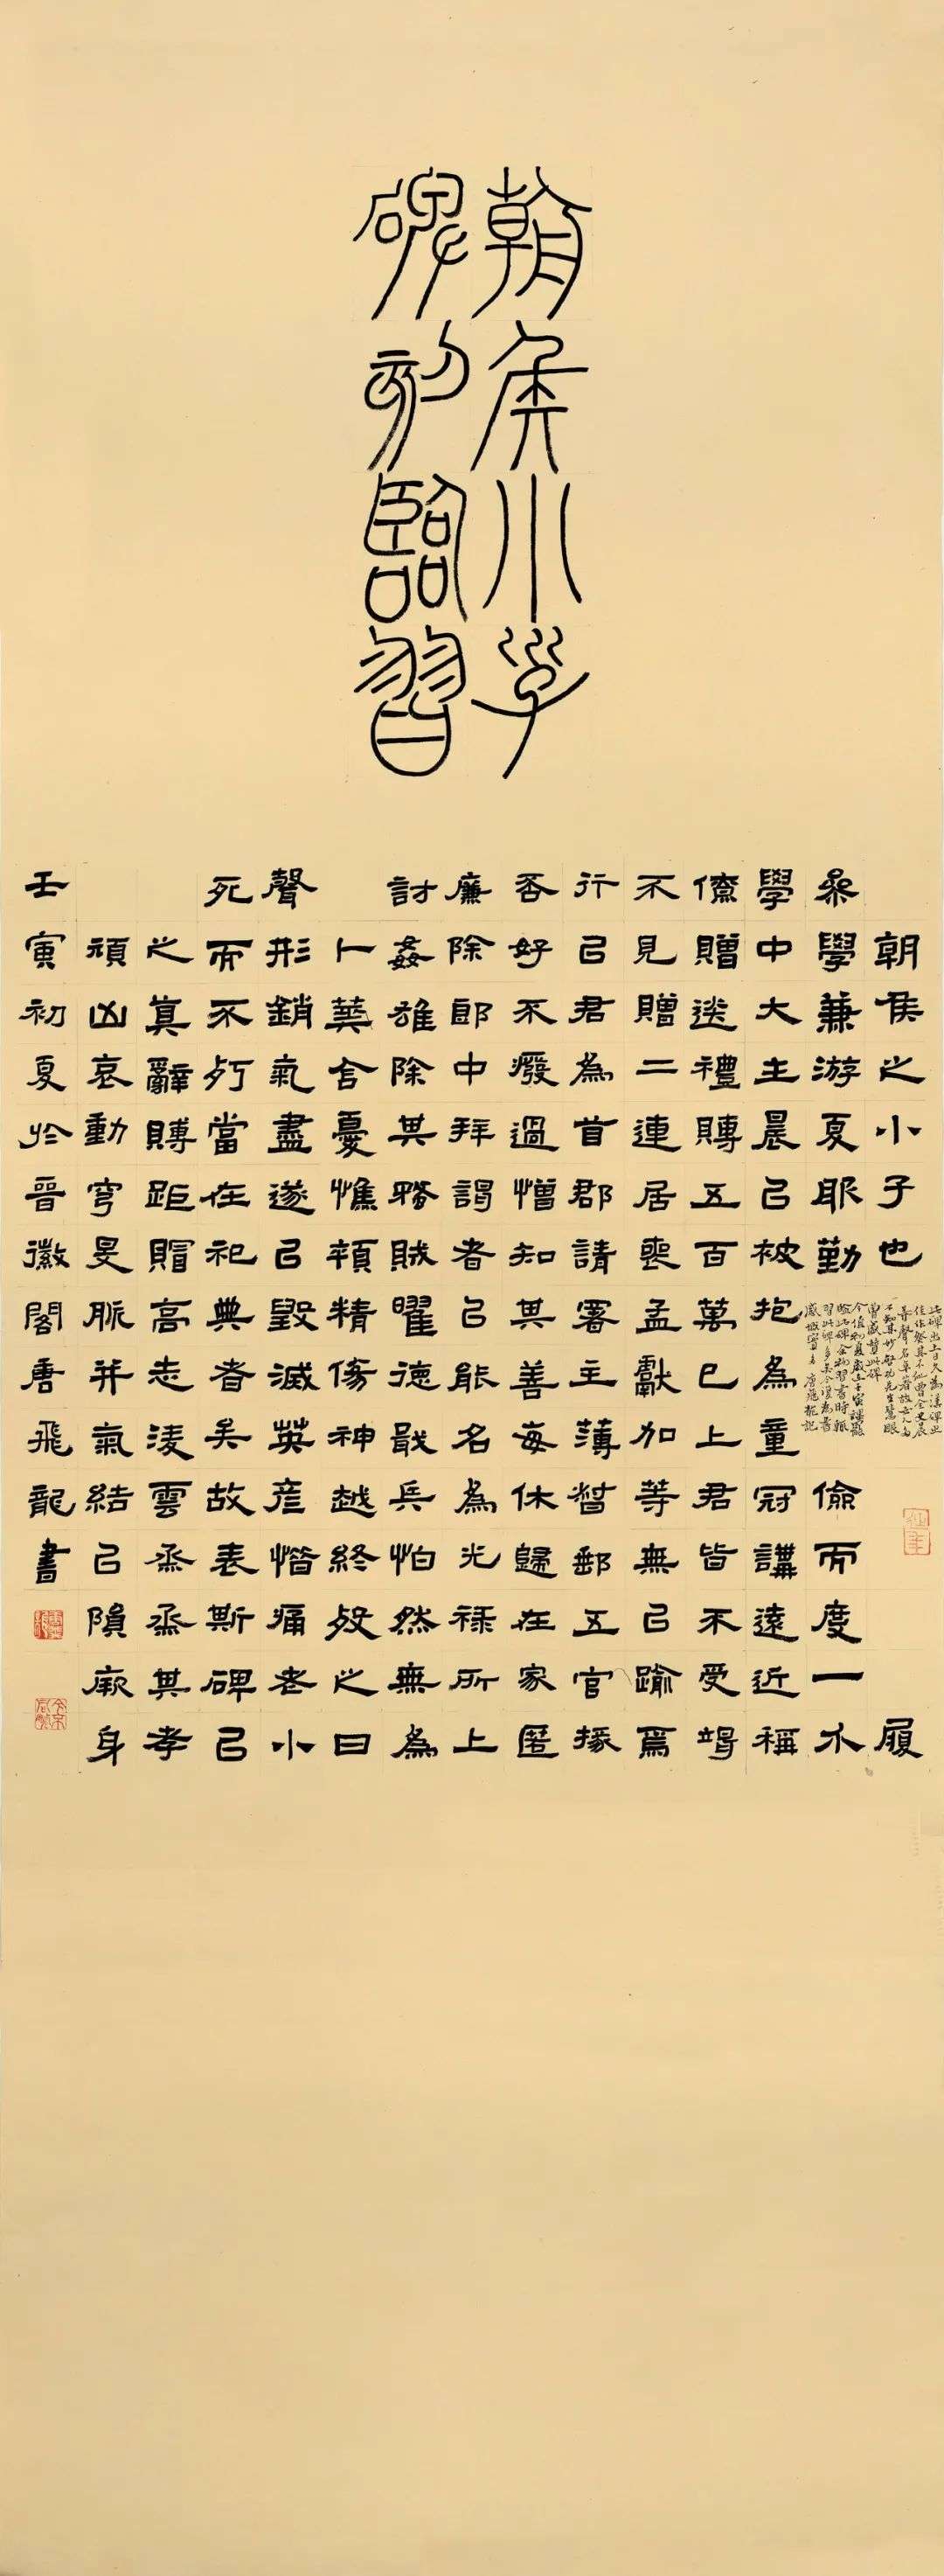 朝侯小子
碑初臨習
朝侯之小子也 履
彖學兼游夏服勤 儉而度一 
學中大主晨以被抱為童冠講遠近稱
僚贈送禮賻五百萬已上君皆不受竭
不見贈二連居喪孟獻加等無以踰焉
行己君為首郡請署主薄督郵五官掾
否好不廢過憎知其善每休歸在家匿
廉除郎中拜謁者以能名為光祿所上
討姦雄除其蟊賊曜德戢兵怕然無為
卜葬含憂憔顇精傷神越終歿之日
聲形銷氣盡遂以毀滅英彥惜痛老小
死而不朽當在祀典者矣故表斯碑以
之真辭賻距賵高志淩雲烝烝其孝
頑凶哀動穹旻脈并氣結以隕厥身
壬寅初夏於晉徽閣唐飛龍書